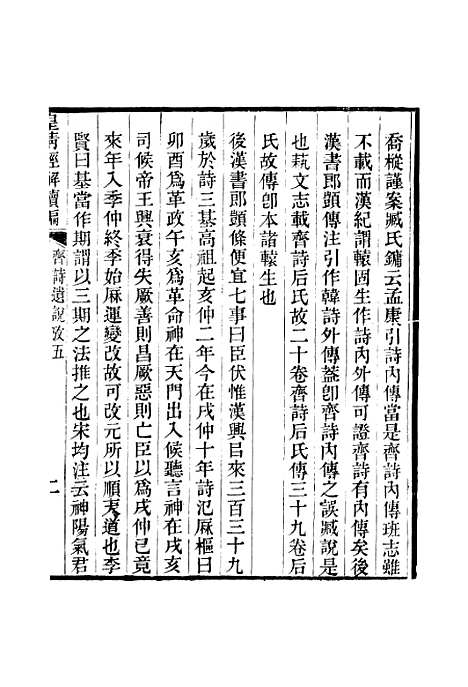 喬樅謹案臧氏鏞云孟康引詩內傳當是齊詩內傳班志雖
不載而漢紀謂轅固生作詩內外傳可證齊詩有內傳矣後
漢書郎顗傳注引作韓詩外傳葢卽齊詩內傳之誤臧說是
也蓺文志載齊詩后氏故二十卷齊詩后氏傳三十九卷后
氏故傳卽本諸轅生也
後漢書郎顗條便宜七事曰臣伏惟漢興㠯來三百三十九
歲於詩三基高祖起亥仲二年今在戌仲十年詩氾厤樞曰
卯酉爲革政午亥爲革命神在天門出入候聽言神在戌亥
司候帝王興衰得失厥善則昌厥惡則亡臣以爲戌仲已竟
來年入季仲終季始厤運變改故可改元所以順天道也李
賢曰基當作期謂以三期之法推之也宋均注云神陽氣君
皇清經解續編
齊詩遺說攷五
二